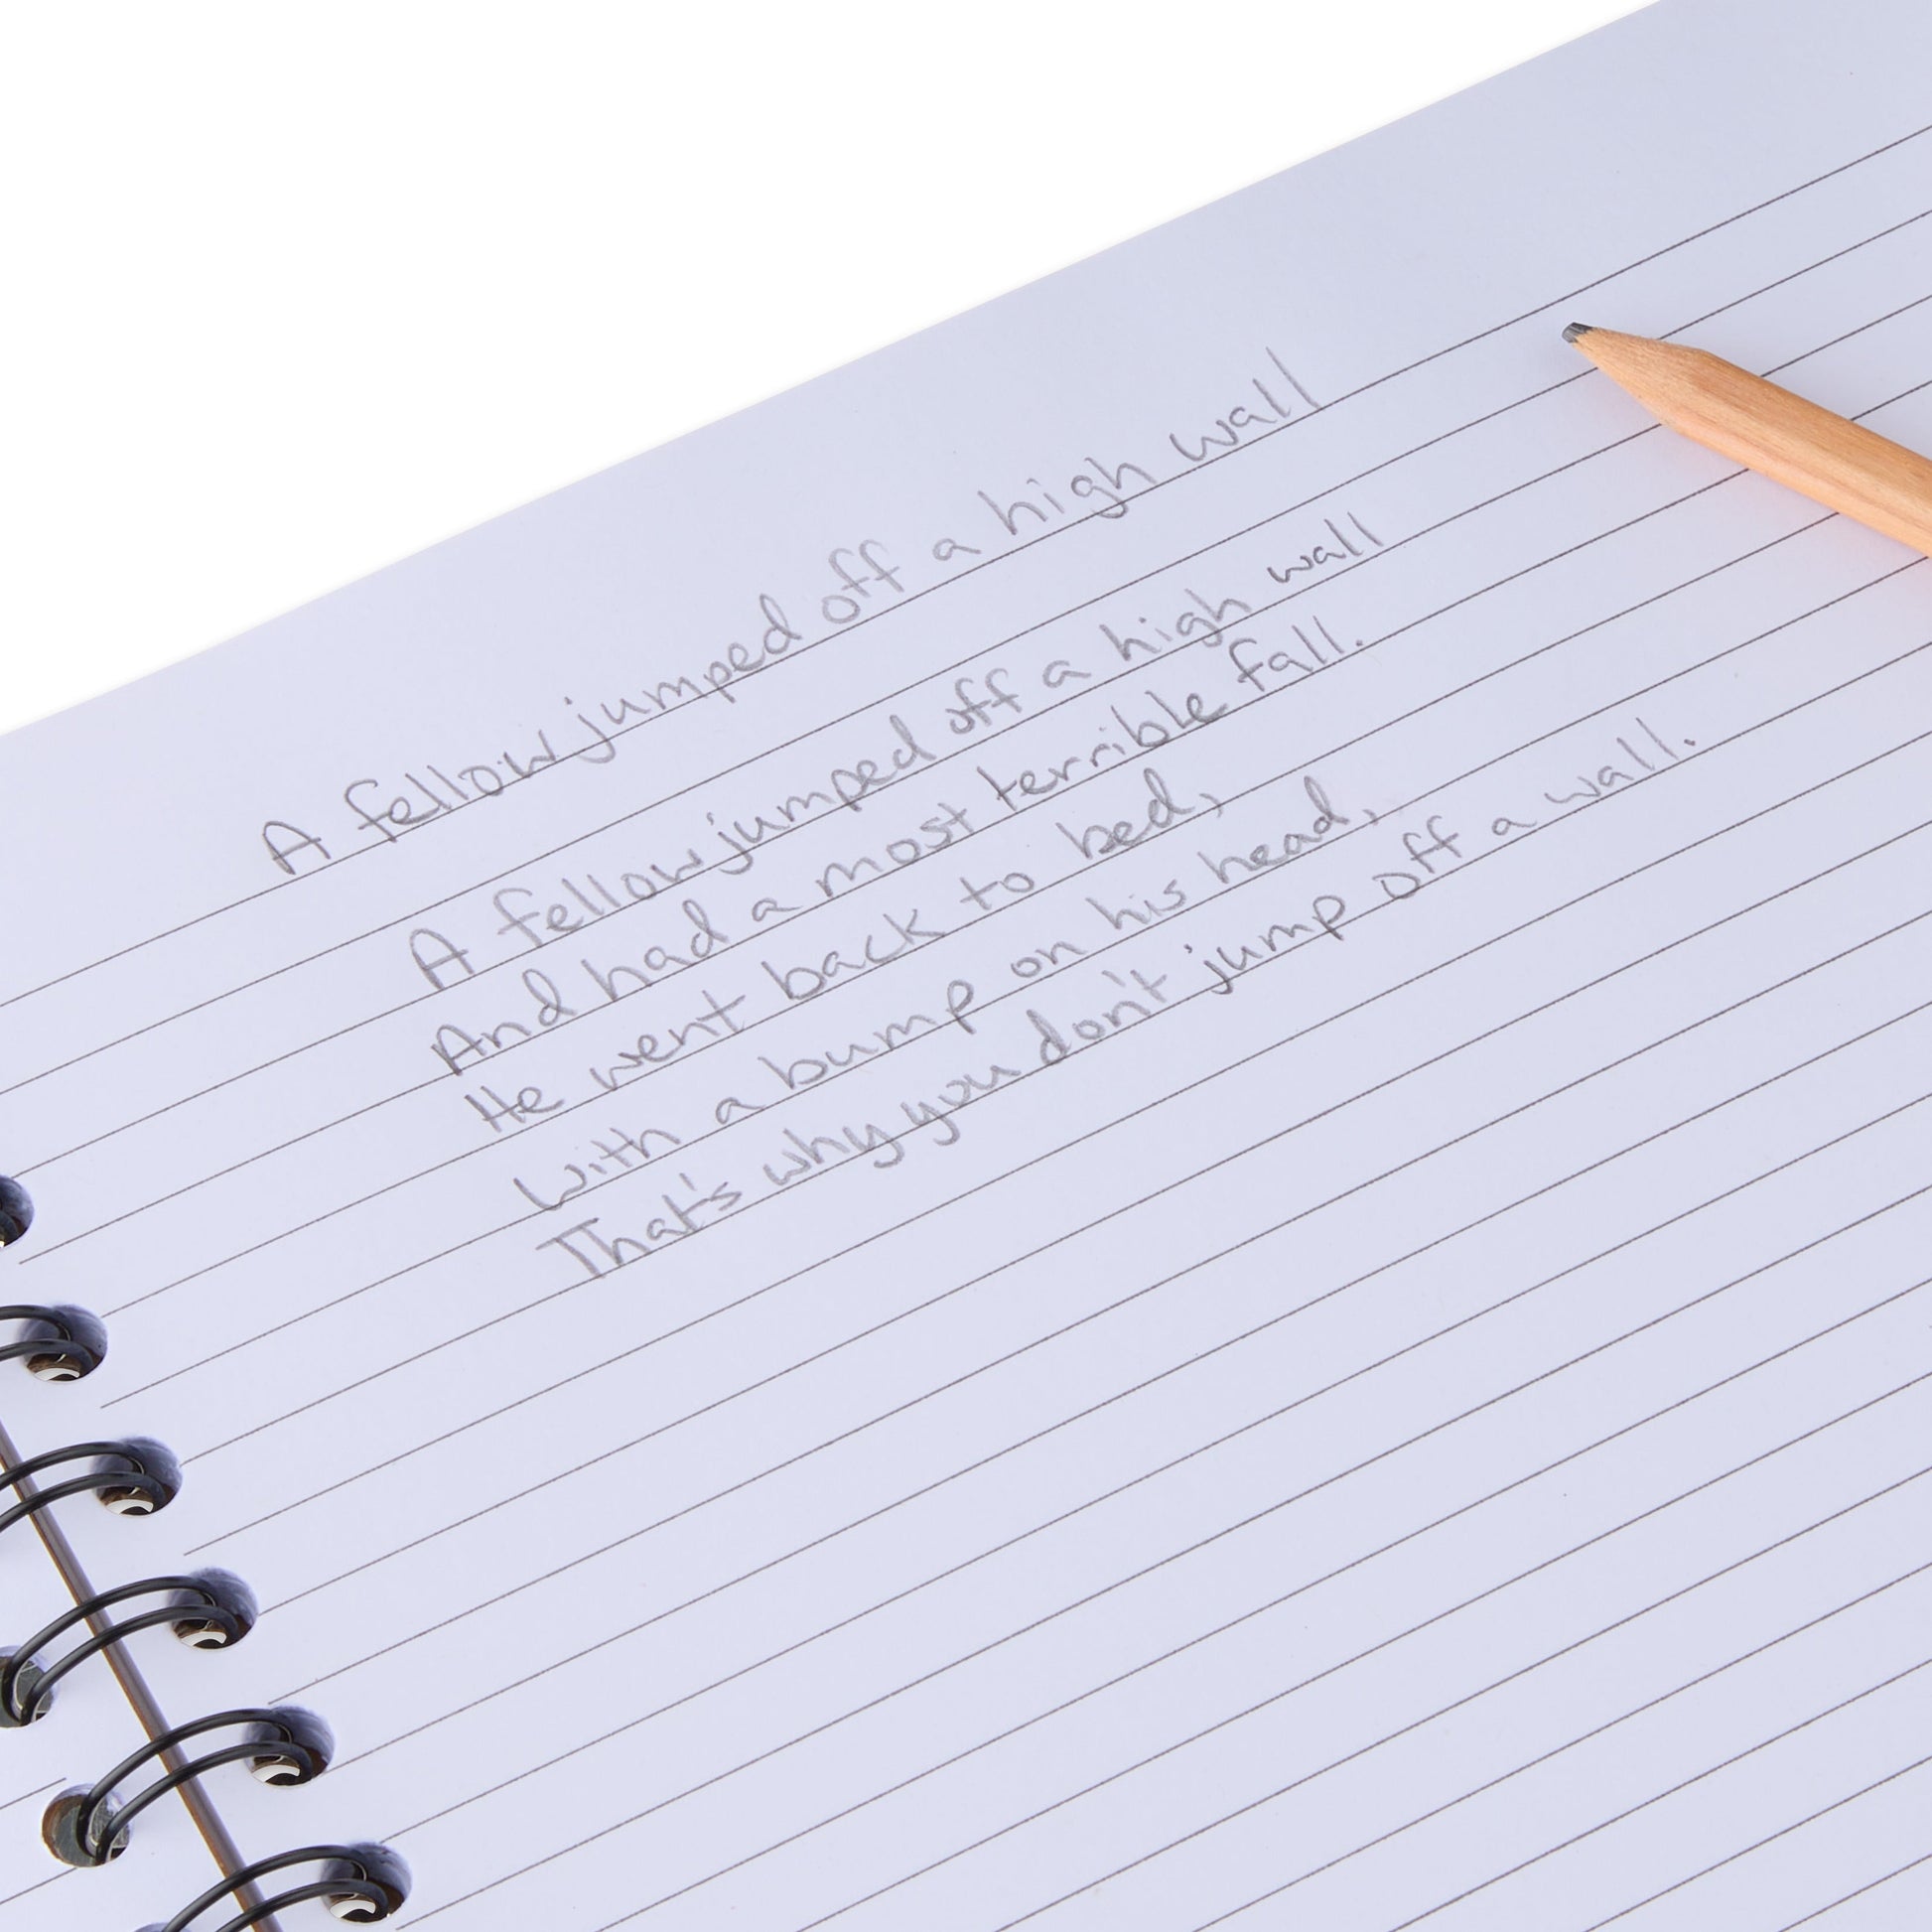 A fellow jumped off a high wall
A fellow jumped off a high wall
And had a most terrible fall.
He went back to bed,
With a bump on his head,
That's why you don't jump off a wall.